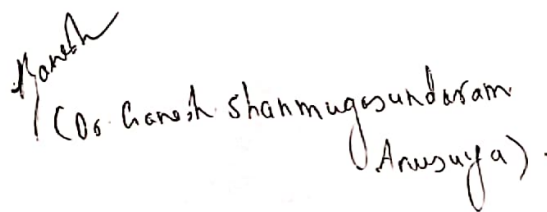 Ganesh
(Dr. Ganesh Shanmugasundaram
Anusuya).